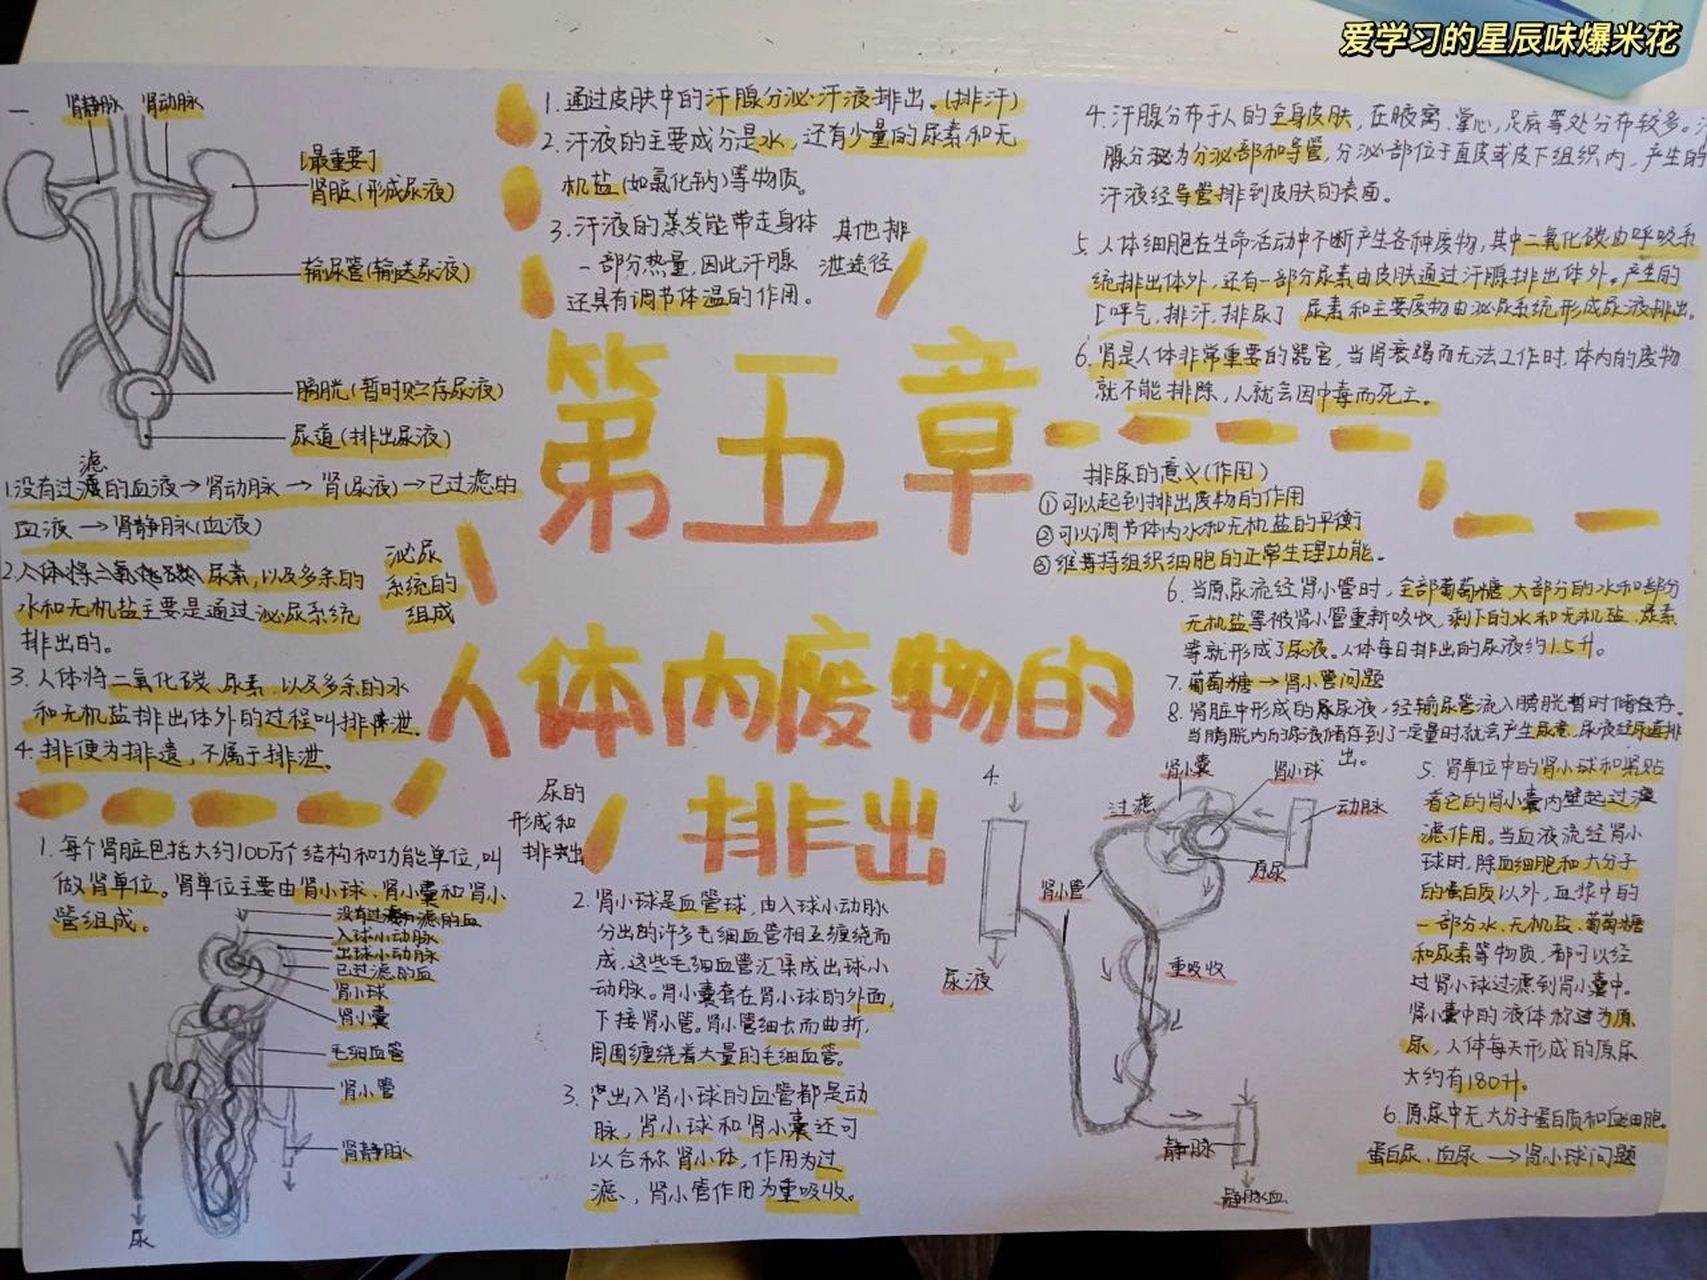 爱学习的星辰味爆米花
一
肾静脉 肾动脉
[最重要]
肾脏(形成尿液)
输尿管(输送尿液)
膀胱(暂时贮存尿液)
尿道(排出尿液)
滤
1.没有过滤的血液→肾动脉→肾(尿液)→已过滤的
血液→肾静脉(血液)
2.人体将二氧化碳、尿素,以及多余的
水和无机盐主要是通过泌尿系统
排出的。
3.人体将二氧化碳、尿素,以及多余的水
和无机盐排出体外的过程叫排泄。
4.排便为排遗,不属于排泄。
泌尿
系统的
组成
1.通过皮肤中的汗腺分泌汗液排出。(排汗)
2.汗液的主要成分是水,还有少量的尿素和无
机盐(如氯化钠)等物质。
3.汗液的蒸发能带走身体
一部分热量,因此汗腺
还具有调节体温的作用。
其他排
泄途径
4.汗腺分布于人的全身皮肤,在腋窝、掌心,足底等处分布较多。汗
腺分泌为分泌部和导管,分泌部位于真皮或皮下组织内,产生的
汗液经导管排到皮肤的表面。
5.人体细胞在生命活动中不断产生各种废物,其中二氧化碳由呼吸系
统排出体外,还有一部分尿素由皮肤通过汗腺排出体外。产生的
[呼气,排汗,排尿] 尿素和主要废物由泌尿系统形成尿液排出。
6.肾是人体非常重要的器官,当肾衰竭而无法工作时,体内的废物
就不能排除,人就会因中毒而死亡。
第五章
人体内废物的
排出
排尿的意义(作用)
①可以起到排出废物的作用
②可以调节体内水和无机盐的平衡
③维持组织细胞的正常生理功能。
6.当原尿流经肾小管时,全部葡萄糖、大部分的水和部分
无机盐等被肾小管重新吸收,剩下的水和无机盐、尿素
等就形成了尿液。人体每日排出的尿液约1.5升。
7.葡萄糖→肾小管问题
8.肾脏中形成的尿液,经输尿管流入膀胱暂时储存。
当膀胱内的尿液储存到了一定量时,就会产生尿意,尿液经尿道排
出。
尿的
形成和
排出
1.每个肾脏包括大约100万个结构和功能单位,叫
做肾单位。肾单位主要由肾小球、肾小囊和肾小
管组成。
没有过滤的血
入球小动脉
出球小动脉
已过滤的血
肾小球
肾小囊
毛细血管
肾小管
肾静脉
尿
2.肾小球是血管球,由入球小动脉
分出的许多毛细血管相互缠绕而
成,这些毛细血管汇集成出球小
动脉。肾小囊套在肾小球的外面,
下接肾小管。肾小管细长而曲折,
周围缠绕着大量的毛细血管。
3.出入肾小球的血管都是动
脉,肾小球和肾小囊还可
以合称肾小体,作用为过
滤、,肾小管作用为重吸收。
4.
肾小囊 肾小球
过滤
动脉
原尿
肾小管
尿液
重吸收
静脉
静脉血
5.肾单位中的肾小球和紧贴
着它的肾小囊内壁起过
滤作用。当血液流经肾小
球时,除血细胞和大分子
的蛋白质以外,血浆中的
一部分水、无机盐、葡萄糖
和尿素等物质,都可以经
过肾小球过滤到肾小囊中。
肾小囊中的液体称为原
尿,人体每天形成的原尿
大约有180升。
6.原尿中无大分子蛋白质和血细胞。
蛋白尿、血尿→肾小球问题